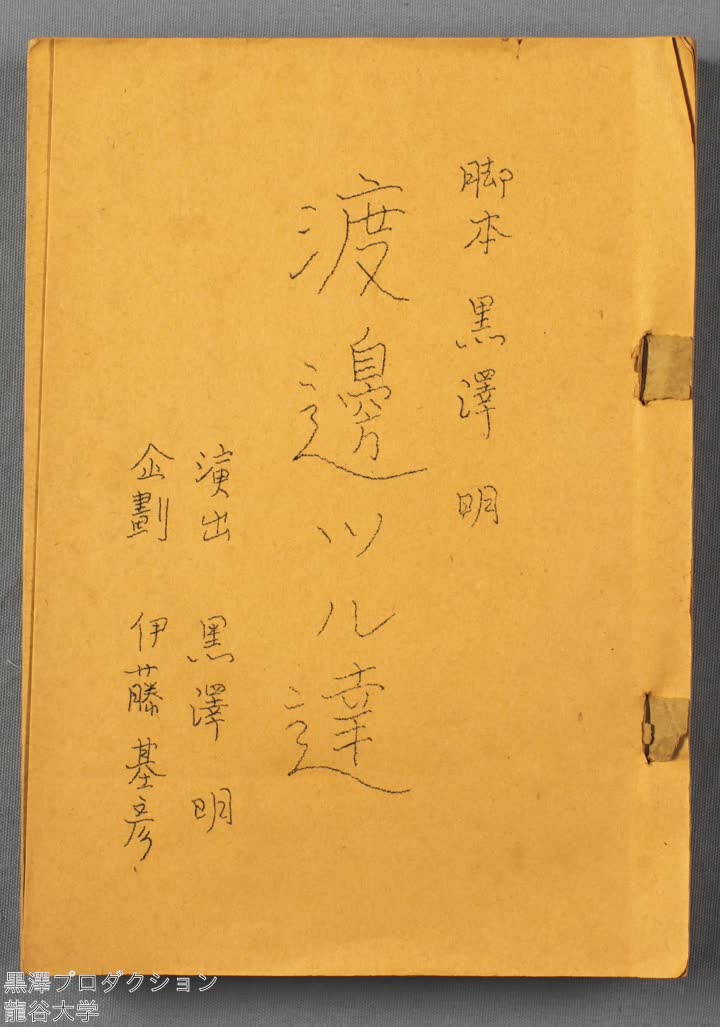 脚本 黒澤 明
渡邊ツル達
演出 黒澤 明
企劃 伊藤基彦
黒澤プロダクション
龍谷大学